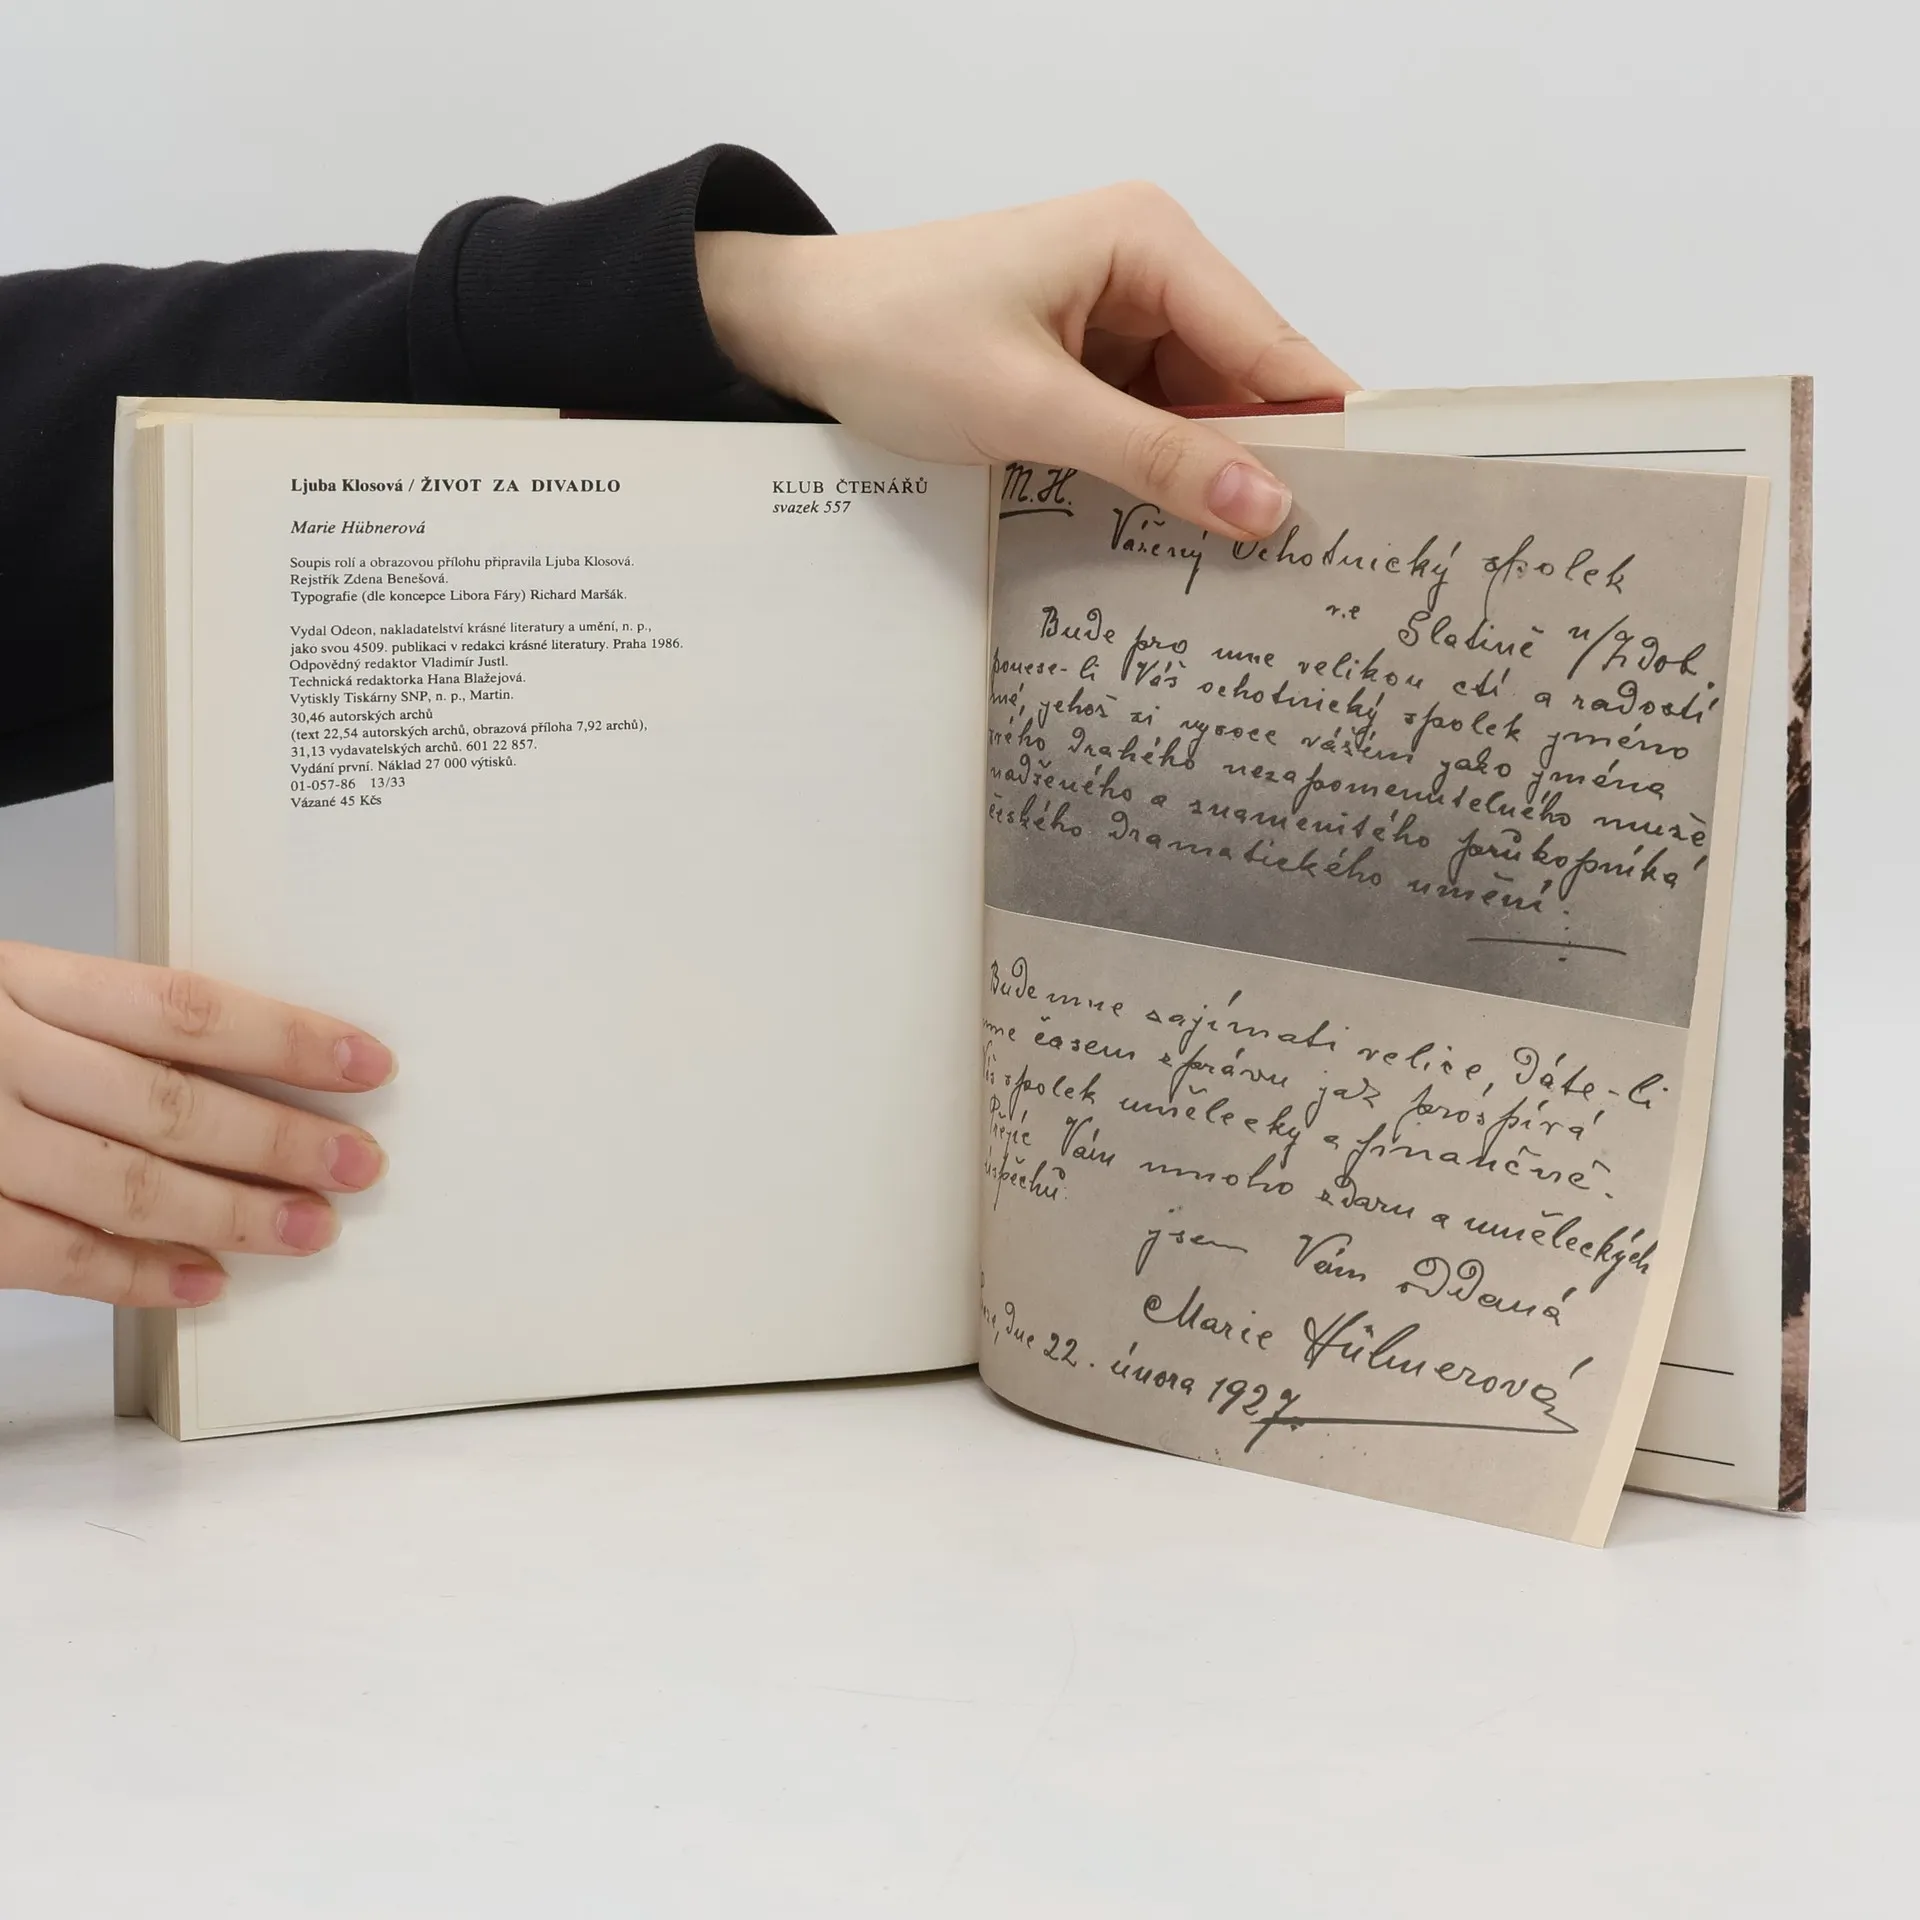 Ljuba Klosová / ŽIVOT ZA DIVADLO
Marie Hübnerová
Soupis rolí a obrazovou přílohu připravila Ljuba Klosová.
Rejstřík Zdena Benešová.
Typografie (dle koncepce Libora Fáry) Richard Maršák.
Vydal Odeon, nakladatelství krásné literatury a umění, n. p.,
jako svou 4509. publikaci v redakci krásné literatury. Praha 1986.
Odpovědný redaktor Vladimír Justl.
Technická redaktorka Hana Blažejová.
Vytiskly Tiskárny SNP, n. p., Martin.
30,46 autorských archů
(text 22,54 autorských archů, obrazová příloha 7,92 archů),
31,13 vydavatelských archů. 601 22 857.
Vydání první. Náklad 27 000 výtisků.
01-057-86 13/33
Vázané 45 Kčs
KLUB ČTENÁŘŮ
svazek 557
M. H.
Vážený Ochotnický spolek
ve Slatině n/Zdob.
Bude pro mne velikou ctí a radostí
ponese-li Váš ochotnický spolek jméno
mé, jehož si vysoce vážím jako jména
svého drahého nezapomenutelného muže
nadšeného a znamenitého průkopníka
českého dramatického umění.
Bude mne zajímati velice, dáte-li
mne časem zprávu jak prospívá
Váš spolek umělecky a finančně.
Přeji Vám mnoho zdaru a uměleckých
úspěchů.
jsem Vám oddaná
Marie Hübnerová
dne 22. února 1927.